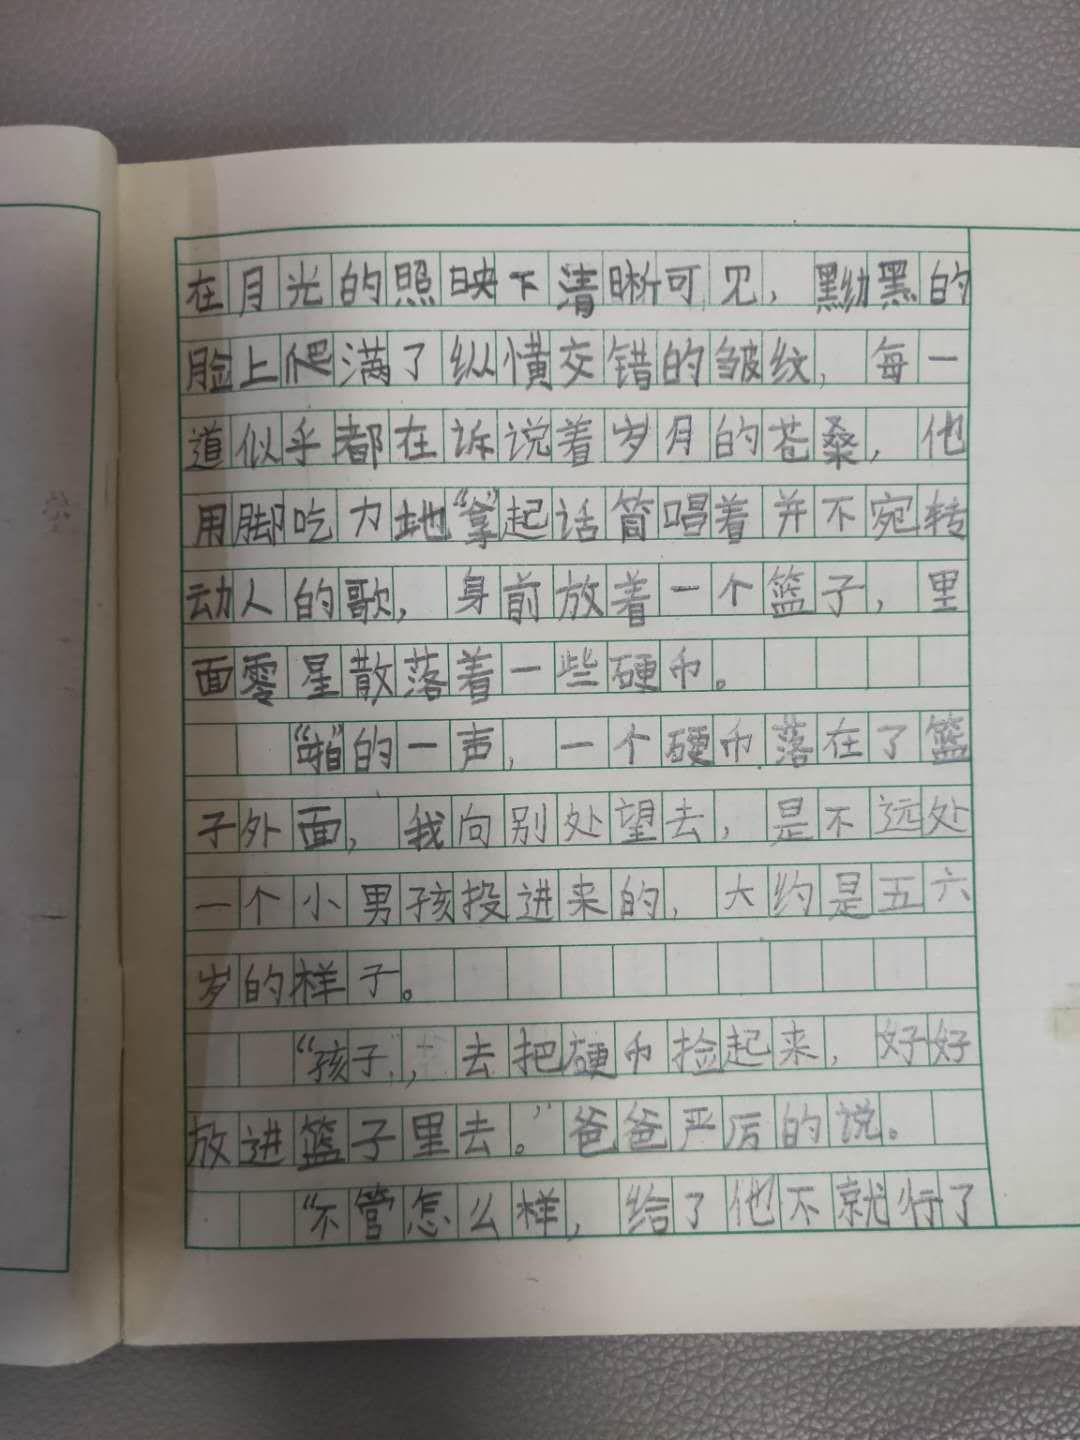 在月光的照映下清晰可见，黝黑的
脸上爬满了纵横交错的皱纹，每一
道似乎都在诉说着岁月的苍桑，他
用脚吃力地“拿”起话筒唱着并不宛转
动人的歌，身前放着一个篮子，里
面零星散落着一些硬币。
“啪”的一声，一个硬币落在了篮
子外面，我向别处望去，是不远处
一个小男孩投进来的，大约是五六
岁的样子。
“孩子，去把硬币捡起来，好好
放进篮子里去。”爸爸严厉的说。
“不管怎么样，给了他不就行了